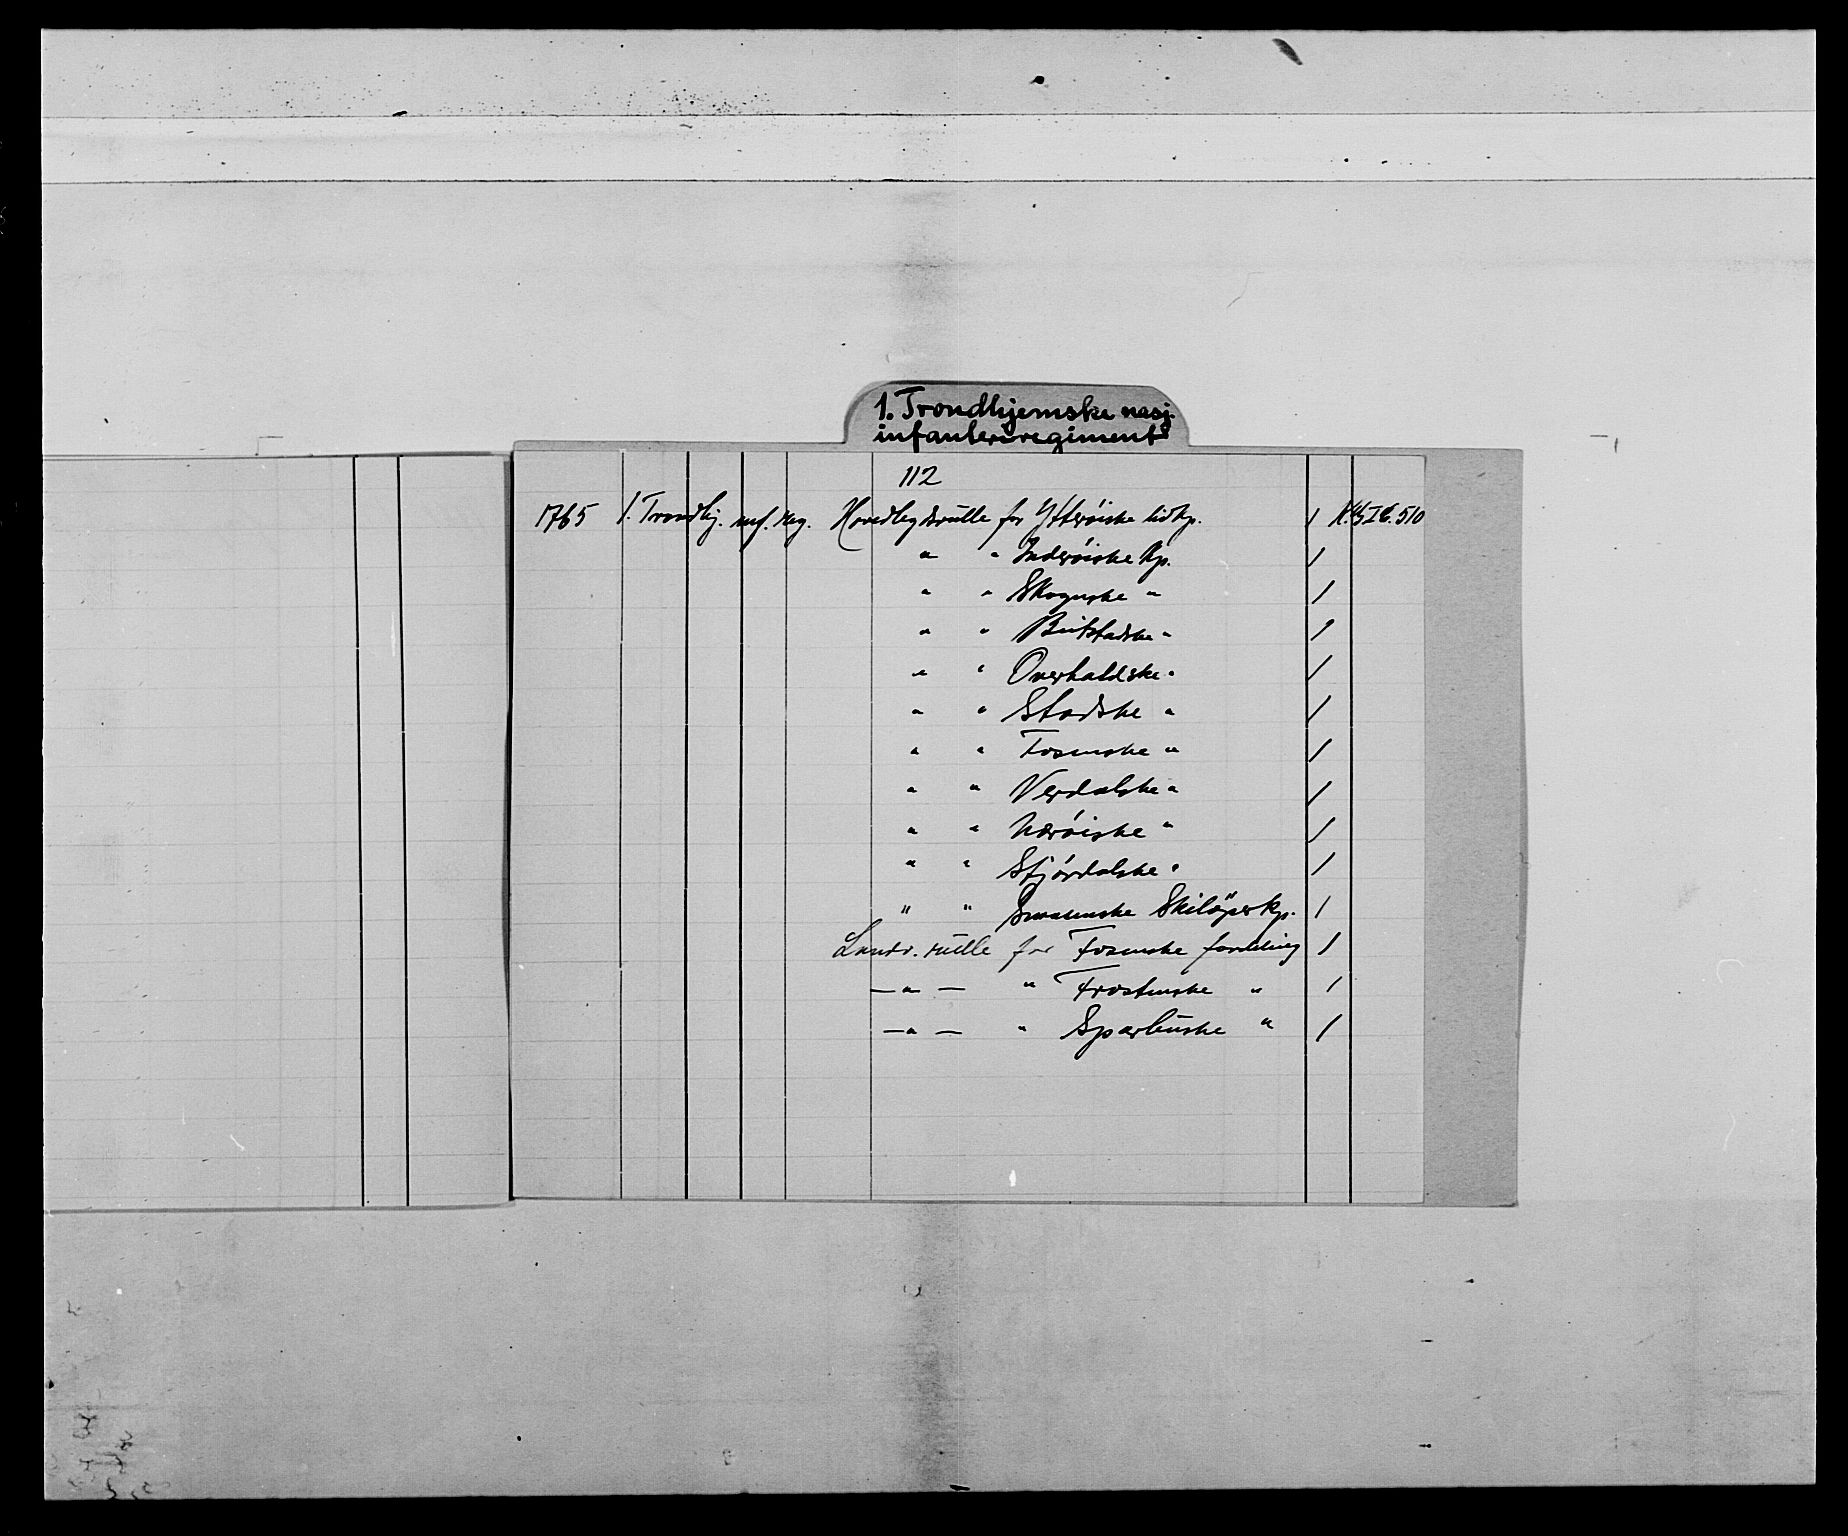 1. Trondhjemske nasj.
infanteriregiment
112
1765 1. Trondhj. inf. reg. Hovedlegdsrulle for Ytterøiske liv kp. 1 510
" " Inderøiske kp. 1
" " Skognske " 1
" " Beitstadske " 1
" " Overhaldske " 1
" " Stodske " 1
" " Fosenske " 1
" " Verdalske " 1
" " Nærøiske " 1
" " Stjørdalske " 1
" " Snåsenske Skiløperkp. 1
Landv. rulle for Fosenske fordeling 1
— " — " Frostenske " 1
— " — " Sparbuske " 1